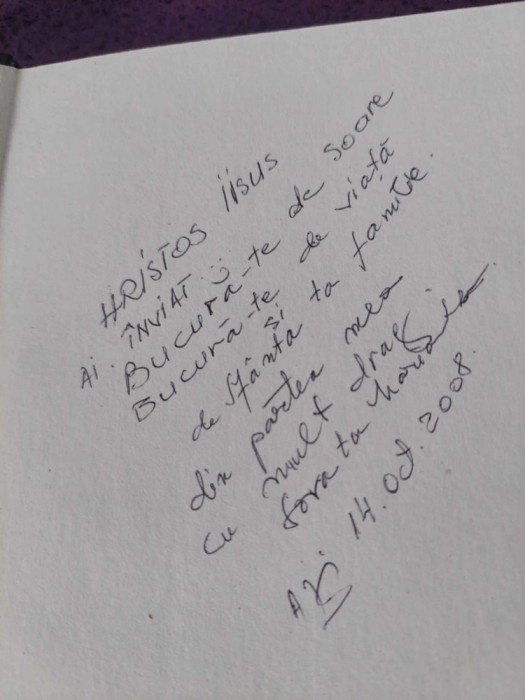 HRISTOS IISUS
Ai ÎNVIAT..
Bucură-te de soare
Bucură-te de viață
și
de sfânta ta familie.
din partea mea
cu mult drag
sora ta
14. Oct. 2008.